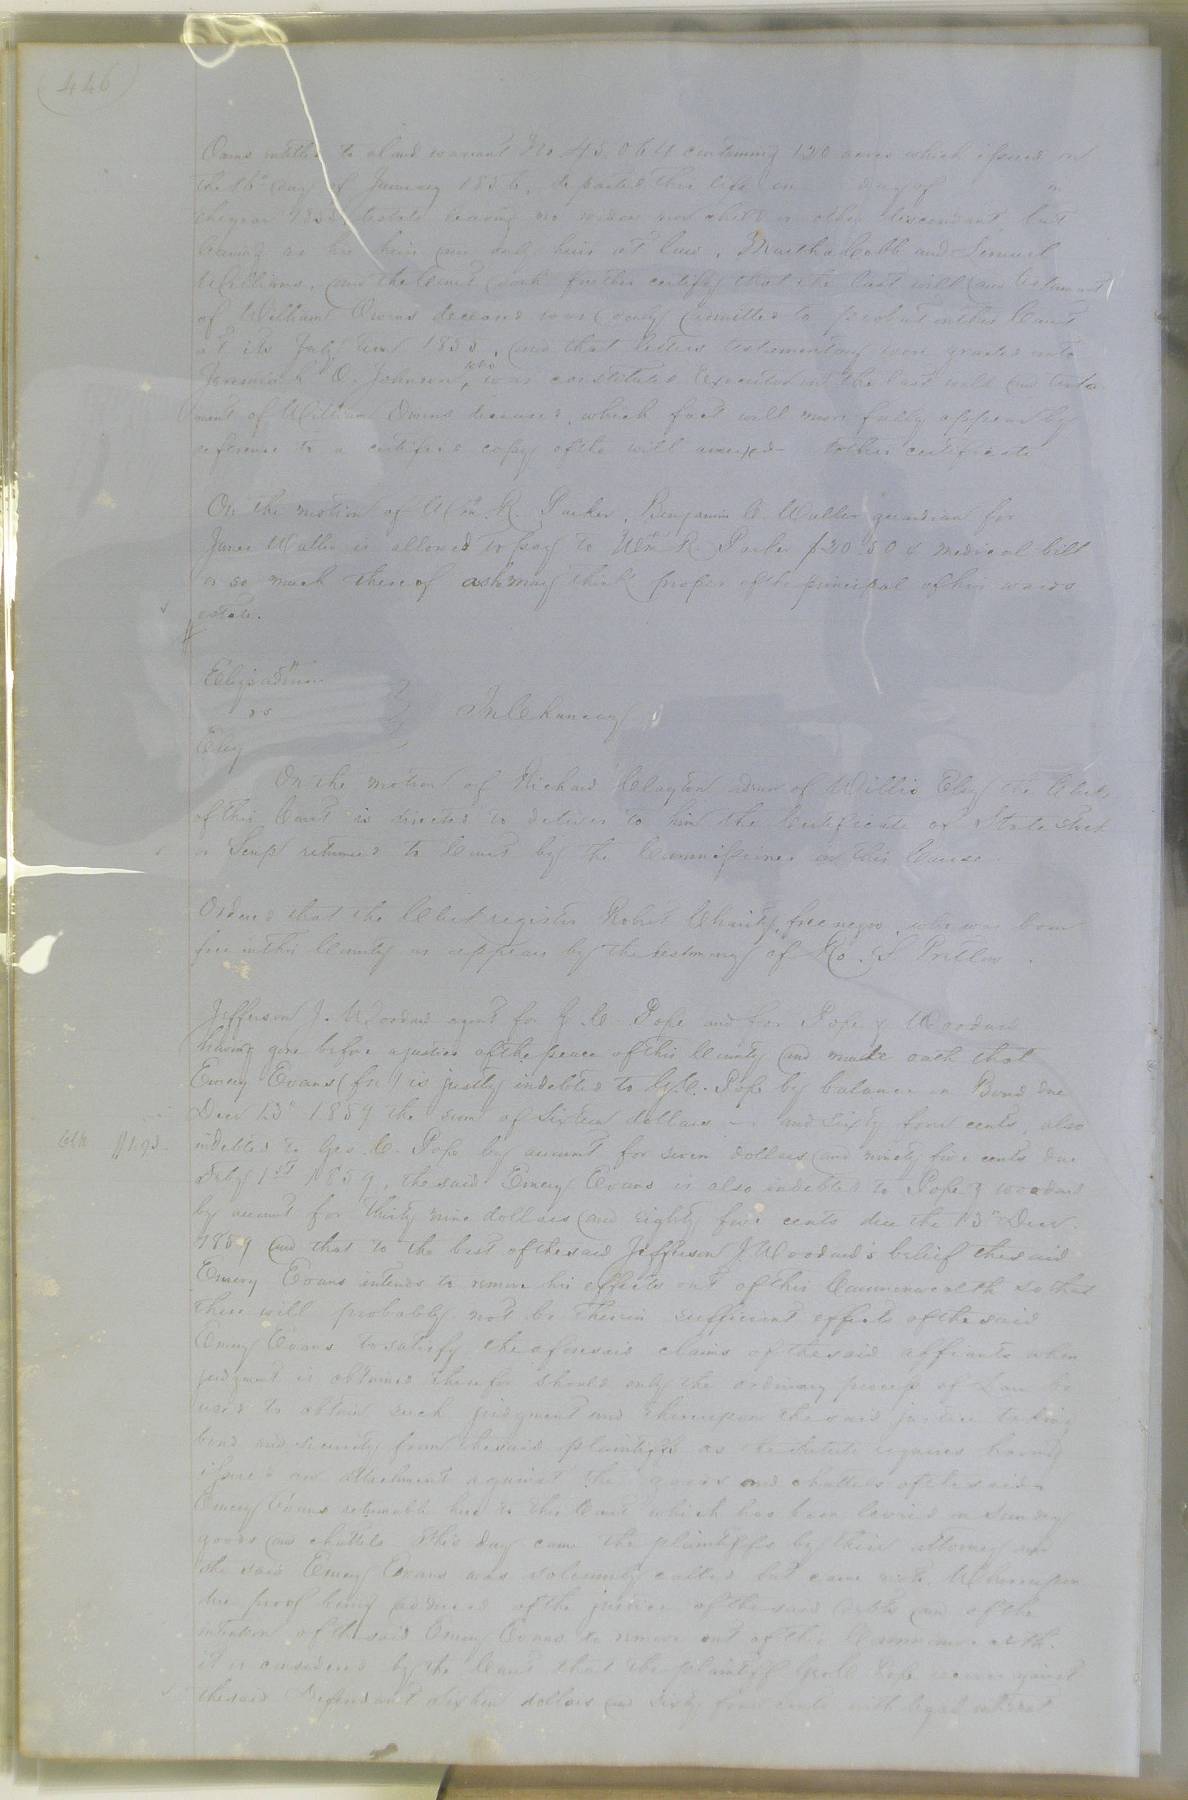 (446)
Owens entitled to a land warrant No 45,064 containing 120 acres which issued on
the 16th day of January 1856, departed this life on day of in
the year 1855, testate leaving no widow nor child or other descendant, but
leaving as his heirs and only heirs at law, Martha Cobb and Lemuel
Williams, and the Court doth further certify that the last will and testament
of William Owens deceased was duly admitted to probate in this Court
at its July term 1855, and that letters testamentary were granted unto
Jeremiah O. Johnson, who was constituted Executor in the last will and testa-
ment of William Owens deceased, which fact will more fully appear by
reference to a certified copy of the will annexed to this certificate
On the motion of Wm. R. Parker, Benjamin Waller guardian for
James Waller is allowed to pay to Wm R. Parker $20.50 medical bill
or so much thereof as he may think proper of the principal of his wards
estate.
Eley's admr
vs
In Chancery
Eley
On the motion of Richard Clayton admr of Willis Eley the Clerk
of this Court is directed to deliver to him the Certificate of State Stock
or Scrip returned to Court by the Commissioner in this Cause
Ordered that the Clerk register Robert Charity, free negro, who was born
free in this County as appears by the testimony of Pretlow.
Jefferson J. Woodard agent for G. C. Pope and for Pope & Woodard
having gone before a justice of the peace of this County and made oath that
Emery Evans (fn) is justly indebted to G. C. Pope by balance on Bond due
Decr 13th 1859 the sum of Sixteen dollars and Sixty four cents, also
indebted to Geo. C. Pope by account for seven dollars and ninety five cents due
1st 1859, the said Emery Evans is also indebted to Pope & Woodard
by account for thirty nine dollars and eighty five cents due the 13th Decr.
1859 and that to the best of the said Jefferson J. Woodard's belief the said
Emery Evans intends to remove his effects out of this Commonwealth so that
there will probably not be therein sufficient effects of the said
Emery Evans to satisfy the aforesaid claims of the said affiants when
judgment is obtained therefor should only the ordinary process of Law be
used to obtain such judgment and thereupon the said justice taking
bond and security from the said plaintiffs as the Statute requires having
issued an attachment against the goods and chattels of the said
Emery Evans returnable here to this Court which has been levied on Sundry
goods and chattels. This day came the plaintiffs by their attorney and
the said Emery Evans was solemnly called but came not. Whereupon
due proof being adduced of the justice of the said debts and of the
intention of the said Emery Evans to remove out of this Commonwealth.
it is considered by the Court that the plaintiff Geo C Pope recover against
the said Defendant sixteen dollars and sixty four cents with legal interest